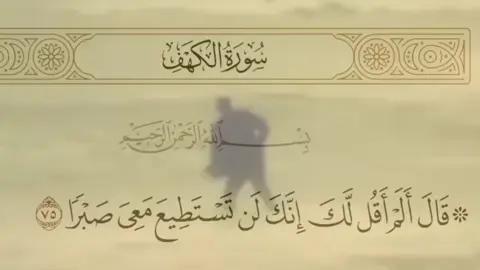 سُورَةُ الكَهْفِ
بِسْمِ اللَّهِ الرَّحْمَنِ الرَّحِيمِ
۞ قَالَ أَلَمْ أَقُل لَّكَ إِنَّكَ لَن تَسْتَطِيعَ مَعِىَ صَبْرًا ٧٥